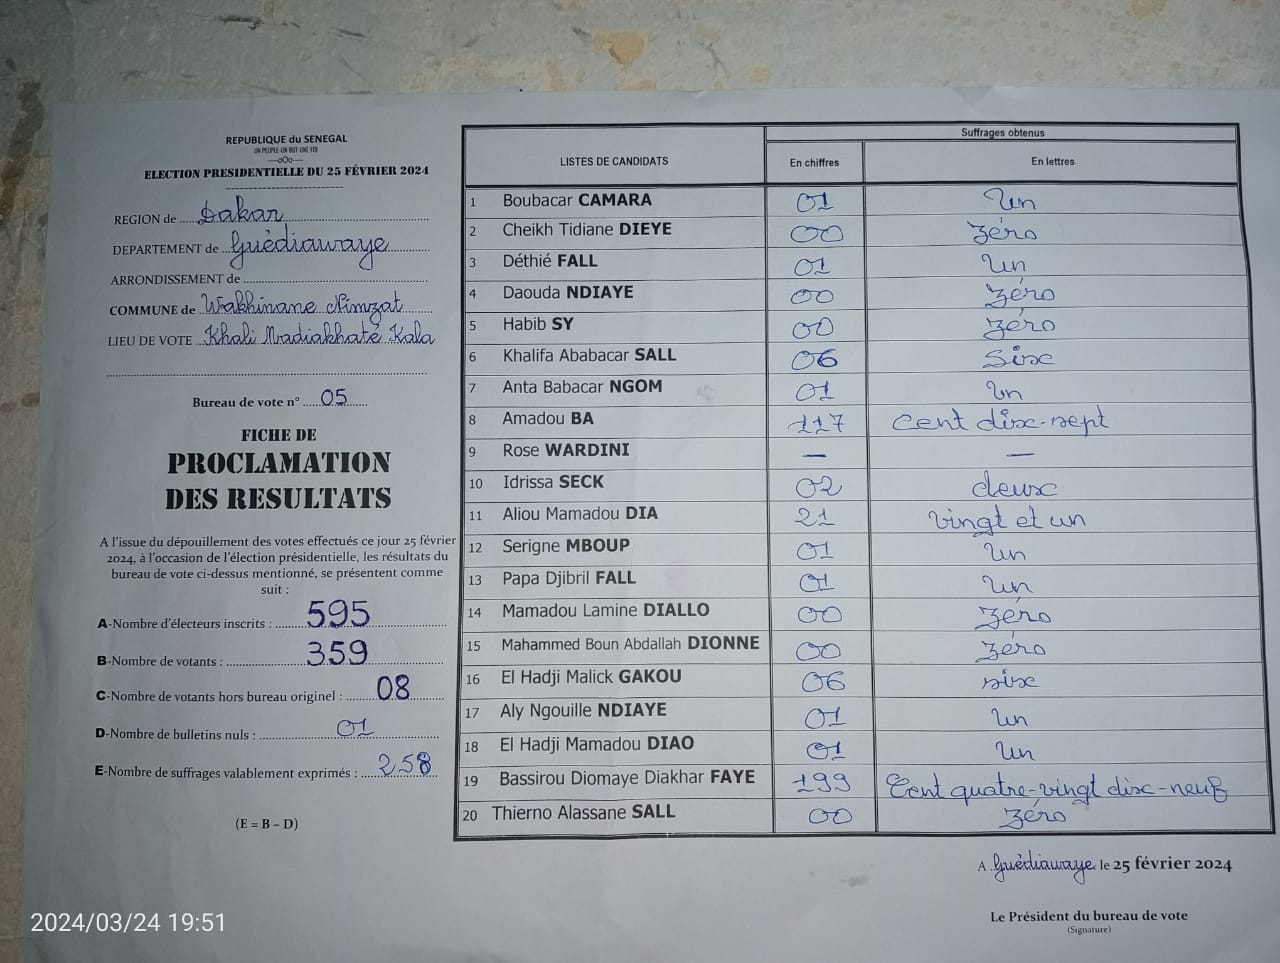 REPUBLIQUE du SENEGAL
UN PEUPLE-UN BUT-UNE FOI
---oOo---
ELECTION PRESIDENTIELLE DU 25 FÉVRIER 2024
REGION de Dakar
DEPARTEMENT de Guédiawaye
ARRONDISSEMENT de
COMMUNE de Wakhinane Nimzat
LIEU DE VOTE Khali Madiakhaté Kala
Bureau de vote n° 05
FICHE DE
PROCLAMATION
DES RESULTATS
A l'issue du dépouillement des votes effectués ce jour 25 février
2024, à l'occasion de l'élection présidentielle, les résultats du
bureau de vote ci-dessus mentionné, se présentent comme
suit :
A-Nombre d'électeurs inscrits : 595
B-Nombre de votants : 359
C-Nombre de votants hors bureau originel : 08
D-Nombre de bulletins nuls : 01
E-Nombre de suffrages valablement exprimés : 258
(E = B – D)
LISTES DE CANDIDATS
Suffrages obtenus
En chiffres En lettres
1 Boubacar CAMARA 01 Un
2 Cheikh Tidiane DIEYE 00 Zéro
3 Déthié FALL 01 Un
4 Daouda NDIAYE 00 Zéro
5 Habib SY 00 Zéro
6 Khalifa Ababacar SALL 06 Six
7 Anta Babacar NGOM 01 Un
8 Amadou BA 117 Cent dix-sept
9 Rose WARDINI — —
10 Idrissa SECK 02 deux
11 Aliou Mamadou DIA 21 Vingt et un
12 Serigne MBOUP 01 Un
13 Papa Djibril FALL 01 Un
14 Mamadou Lamine DIALLO 00 Zéro
15 Mahammed Boun Abdallah DIONNE 00 Zéro
16 El Hadji Malick GAKOU 06 six
17 Aly Ngouille NDIAYE 01 Un
18 El Hadji Mamadou DIAO 01 Un
19 Bassirou Diomaye Diakhar FAYE 199 Cent quatre-vingt dix-neuf
20 Thierno Alassane SALL 00 Zéro
A Guédiawaye le 25 février 2024
Le Président du bureau de vote
(Signature)
2024/03/24 19:51